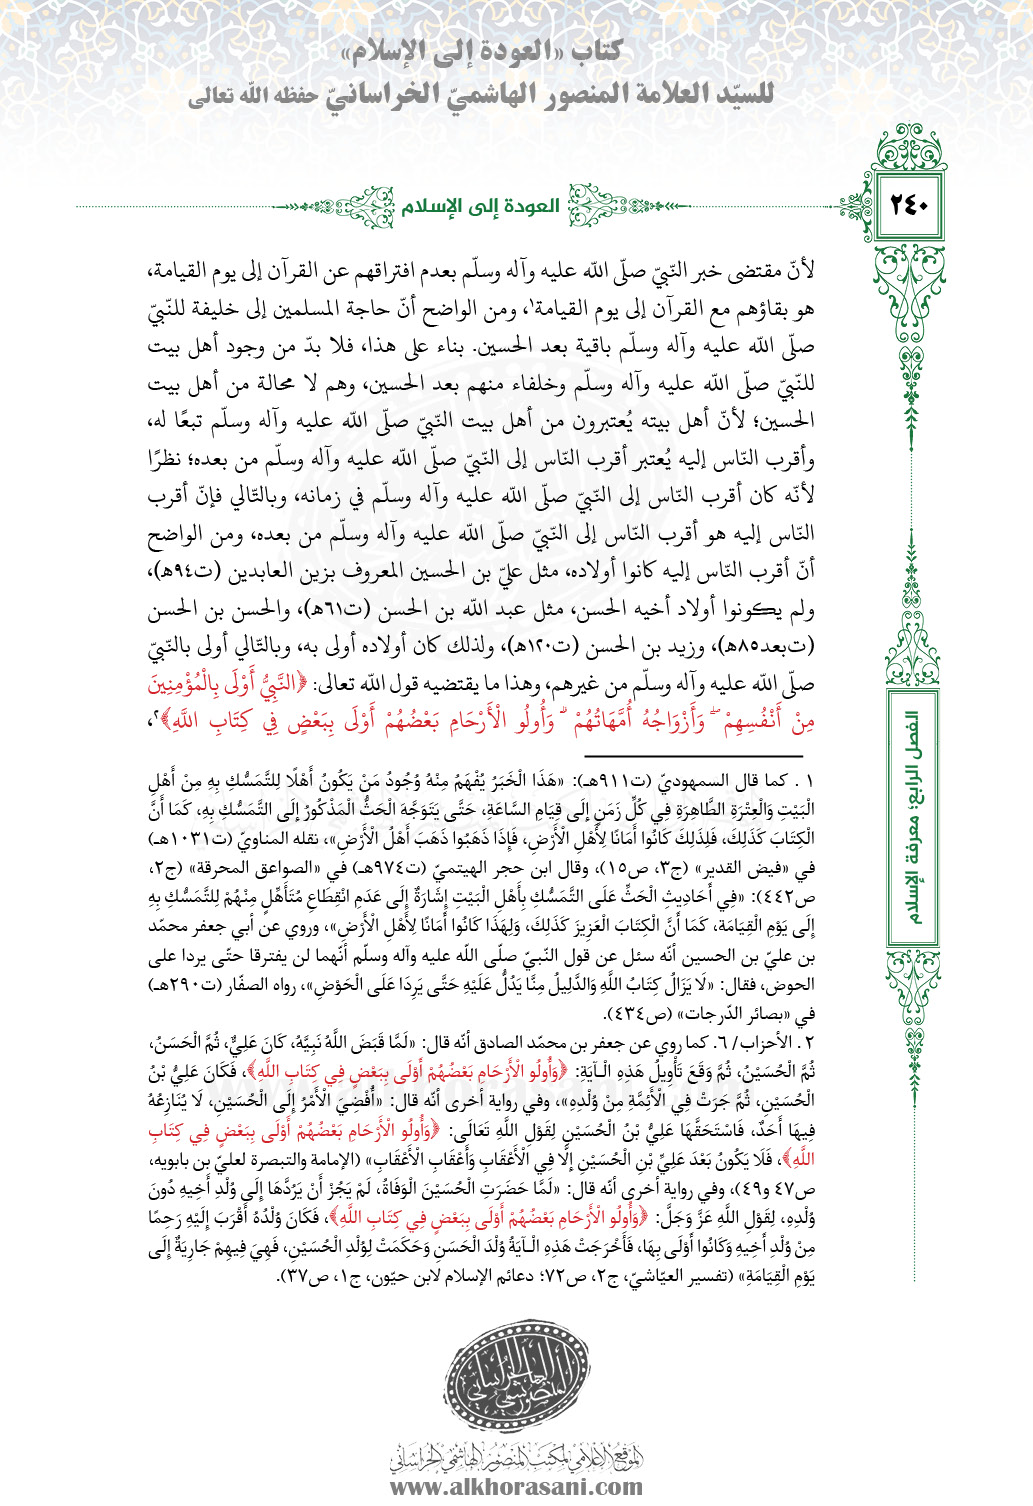 كتاب «العودة إلى الإسلام»
للسيّد العلامة المنصور الهاشميّ الخراسانيّ حفظه الله تعالى
٢٤٠
العودة إلى الإسلام
لأنّ مقتضى خبر النّبيّ صلّى الله عليه وآله وسلّم بعدم افتراقهم عن القرآن إلى يوم القيامة،
هو بقاؤهم مع القرآن إلى يوم القيامة١، ومن الواضح أنّ حاجة المسلمين إلى خليفة للنّبيّ
صلّى الله عليه وآله وسلّم باقية بعد الحسين. بناء على هذا، فلا بدّ من وجود أهل بيت
للنّبيّ صلّى الله عليه وآله وسلّم وخلفاء منهم بعد الحسين، وهم لا محالة من أهل بيت
الحسين؛ لأنّ أهل بيته يُعتبرون من أهل بيت النّبيّ صلّى الله عليه وآله وسلّم تبعًا له،
وأقرب النّاس إليه يُعتبر أقرب النّاس إلى النّبيّ صلّى الله عليه وآله وسلّم من بعده؛ نظرًا
لأنّه كان أقرب النّاس إلى النّبيّ صلّى الله عليه وآله وسلّم في زمانه، وبالتّالي فإنّ أقرب
النّاس إليه هو أقرب النّاس إلى النّبيّ صلّى الله عليه وآله وسلّم من بعده، ومن الواضح
أنّ أقرب النّاس إليه كانوا أولاده، مثل عليّ بن الحسين المعروف بزين العابدين (ت٩٤هـ)،
ولم يكونوا أولاد أخيه الحسن، مثل عبد الله بن الحسن (ت٦١هـ)، والحسن بن الحسن
(ت‌بعد٨٥هـ)، وزيد بن الحسن (ت١٢٠هـ)، ولذلك كان أولاده أولى به، وبالتّالي أولى بالنّبيّ
صلّى الله عليه وآله وسلّم من غيرهم، وهذا ما يقتضيه قول الله تعالى: ﴿النَّبِيُّ أَوْلَى بِالْمُؤْمِنِينَ
مِنْ أَنْفُسِهِمْ ۖ وَأَزْوَاجُهُ أُمَّهَاتُهُمْ ۗ وَأُولُو الْأَرْحَامِ بَعْضُهُمْ أَوْلَى بِبَعْضٍ فِي كِتَابِ اللَّهِ﴾٢،
١ . كما قال السمهوديّ (ت٩١١هـ): «هَذَا الْخَبَرُ يُفْهَمُ مِنْهُ وُجُودُ مَنْ يَكُونُ أَهْلًا لِلتَّمَسُّكِ بِهِ مِنْ أَهْلِ
الْبَيْتِ وَالْعِتْرَةِ الطَّاهِرَةِ فِي كُلِّ زَمَنٍ إِلَى قِيَامِ السَّاعَةِ، حَتَّى يَتَوَجَّهَ الْحَثُّ الْمَذْكُورُ إِلَى التَّمَسُّكِ بِهِ، كَمَا أَنَّ
الْكِتَابَ كَذَلِكَ، فَلِذَلِكَ كَانُوا أَمَانًا لِأَهْلِ الْأَرْضِ، فَإِذَا ذَهَبُوا ذَهَبَ أَهْلُ الْأَرْضِ»، نقله المناويّ (ت١٠٣١هـ)
في «فيض القدير» (ج٣، ص١٥)، وقال ابن حجر الهيتميّ (ت٩٧٤هـ) في «الصواعق المحرقة» (ج٢،
ص٤٤٢): «فِي أَحَادِيثِ الْحَثِّ عَلَى التَّمَسُّكِ بِأَهْلِ الْبَيْتِ إِشَارَةٌ إِلَى عَدَمِ انْقِطَاعِ مُتَأَهِّلٍ مِنْهُمْ لِلتَّمَسُّكِ بِهِ
إِلَى يَوْمِ الْقِيَامَة، كَمَا أَنَّ الْكِتَابَ الْعَزِيزَ كَذَلِكَ، وَلِهَذَا كَانُوا أَمَانًا لِأَهْلِ الْأَرْضِ»، وروي عن أبي جعفر محمّد
بن عليّ بن الحسين أنّه سئل عن قول النّبيّ صلّى الله عليه وآله وسلّم أنّهما لن يفترقا حتّى يردا على
الحوض، فقال: «لَا يَزَالُ كِتَابُ اللَّهِ وَالدَّلِيلُ مِنَّا يَدُلُّ عَلَيْهِ حَتَّى يَرِدَا عَلَى الْحَوْضِ»، رواه الصفّار (ت٢٩٠هـ)
في «بصائر الدّرجات» (ص٤٣٤).
٢ . الأحزاب/ ٦. كما روي عن جعفر بن محمّد الصادق أنّه قال: «لَمَّا قَبَضَ اللَّهُ نَبِيَّهُ، كَانَ عَلِيٌّ، ثُمَّ الْحَسَنُ،
ثُمَّ الْحُسَيْنُ، ثُمَّ وَقَعَ تَأْوِيلُ هَذِهِ الْـآيَةِ: ﴿وَأُولُو الْأَرْحَامِ بَعْضُهُمْ أَوْلَى بِبَعْضٍ فِي كِتَابِ اللَّهِ﴾، فَكَانَ عَلِيُّ بْنُ
الْحُسَيْنِ، ثُمَّ جَرَتْ فِي الْأَئِمَّةِ مِنْ وُلْدِهِ»، وفي رواية أخرى أنّه قال: «أُفْضِيَ الْأَمْرُ إِلَى الْحُسَيْنِ، لَا يُنَازِعُهُ
فِيهَا أَحَدٌ، فَاسْتَحَقَّهَا عَلِيُّ بْنُ الْحُسَيْنِ لِقَوْلِ اللَّهِ تَعَالَى: ﴿وَأُولُو الْأَرْحَامِ بَعْضُهُمْ أَوْلَى بِبَعْضٍ فِي كِتَابِ
اللَّهِ﴾، فَلَا يَكُونُ بَعْدَ عَلِيِّ بْنِ الْحُسَيْنِ إِلَّا فِي الْأَعْقَابِ وَأَعْقَابِ الْأَعْقَابِ» (الإمامة والتبصرة لعليّ بن بابويه،
ص٤٧ و٤٩)، وفي رواية أخرى أنّه قال: «لَمَّا حَضَرَتِ الْحُسَيْنَ الْوَفَاةُ، لَمْ يَجُزْ أَنْ يَرُدَّهَا إِلَى وُلْدِ أَخِيهِ دُونَ
وُلْدِهِ، لِقَوْلِ اللَّهِ عَزَّ وَجَلَّ: ﴿وَأُولُو الْأَرْحَامِ بَعْضُهُمْ أَوْلَى بِبَعْضٍ فِي كِتَابِ اللَّهِ﴾، فَكَانَ وُلْدُهُ أَقْرَبَ إِلَيْهِ رَحِمًا
مِنْ وُلْدِ أَخِيهِ وَكَانُوا أَوْلَى بِهَا، فَأَخْرَجَتْ هَذِهِ الْـآيَةُ وُلْدَ الْحَسَنِ وَحَكَمَتْ لِوُلْدِ الْحُسَيْنِ، فَهِيَ فِيهِمْ جَارِيَةٌ إِلَى
يَوْمِ الْقِيَامَةِ» (تفسير العيّاشيّ، ج٢، ص٧٢؛ دعائم الإسلام لابن حيّون، ج١، ص٣٧).
الفصل الرابع؛ معرفة الإسلام
المنصور الهاشمي الخراساني
الموقع الإعلامي لمكتب المنصور الهاشمي الخراساني
www.alkhorasani.com